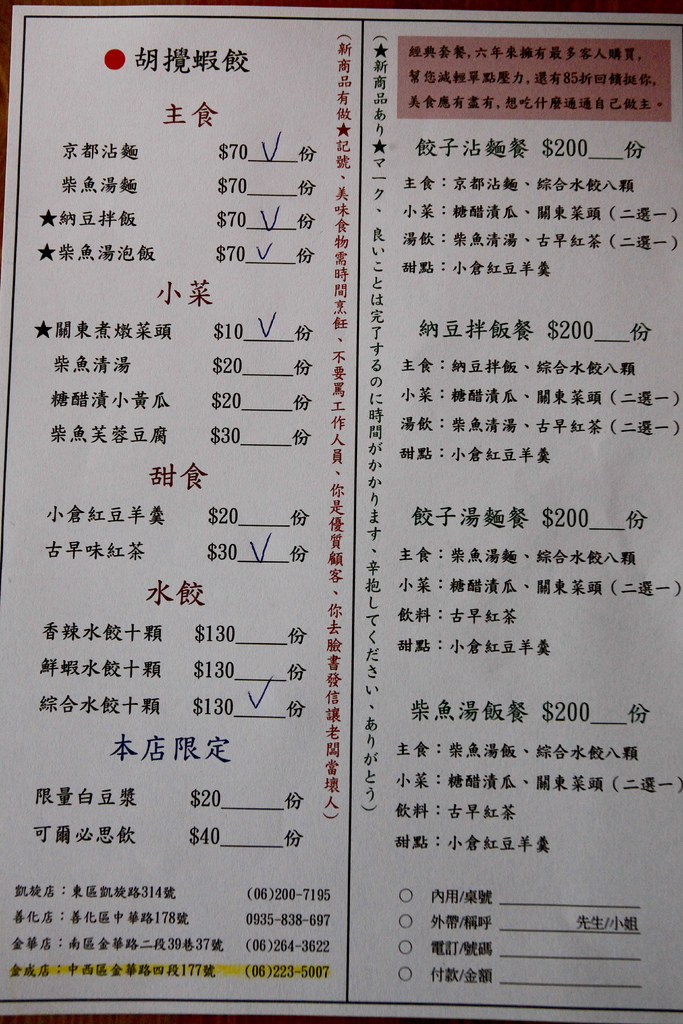 胡攪蝦餃
主食
京都沾麵 $70 V 份
柴魚湯麵 $70____份
★納豆拌飯 $70 V 份
★柴魚湯泡飯 $70 V 份
小菜
★關東煮燉菜頭 $10 V 份
柴魚清湯 $20____份
糖醋漬小黃瓜 $20____份
柴魚芙蓉豆腐 $30____份
甜食
小倉紅豆羊羹 $20____份
古早味紅茶 $30 V 份
水餃
香辣水餃十顆 $130____份
鮮蝦水餃十顆 $130____份
綜合水餃十顆 $130 V 份
本店限定
限量白豆漿 $20____份
可爾必思飲 $40____份
凱旋店：東區凱旋路314號 (06)200-7195
善化店：善化區中華路178號 0935-838-697
金華店：南區金華路二段39巷37號 (06)264-3622
金成店：中西區金華路四段177號 (06)223-5007
（新商品有做★記號、美味食物需時間烹飪、不要罵工作人員、你是優質顧客、你去臉書發信讓老闆當壞人）
（★新商品あり★マーク、良いことは完了するのに時間がかかります、辛抱してください、ありがとう）
經典套餐，六年來擁有最多客人購買，
幫您減輕單點壓力，還有85折回饋挺你，
美食應有盡有，想吃什麼通通自己做主。
餃子沾麵餐 $200___份
主食：京都沾麵、綜合水餃八顆
小菜：糖醋漬瓜、關東菜頭（二選一）
湯飲：柴魚清湯、古早紅茶（二選一）
甜點：小倉紅豆羊羹
納豆拌飯餐 $200___份
主食：納豆拌飯、綜合水餃八顆
小菜：糖醋漬瓜、關東菜頭（二選一）
湯飲：柴魚清湯、古早紅茶（二選一）
甜點：小倉紅豆羊羹
餃子湯麵餐 $200___份
主食：柴魚湯麵、綜合水餃八顆
小菜：糖醋漬瓜、關東菜頭（二選一）
飲料：古早紅茶
甜點：小倉紅豆羊羹
柴魚湯飯餐 $200___份
主食：柴魚湯飯、綜合水餃八顆
小菜：糖醋漬瓜、關東菜頭（二選一）
飲料：古早紅茶
甜點：小倉紅豆羊羹
○ 內用/桌號
○ 外帶/稱呼 先生/小姐
○ 電訂/號碼
○ 付款/金額